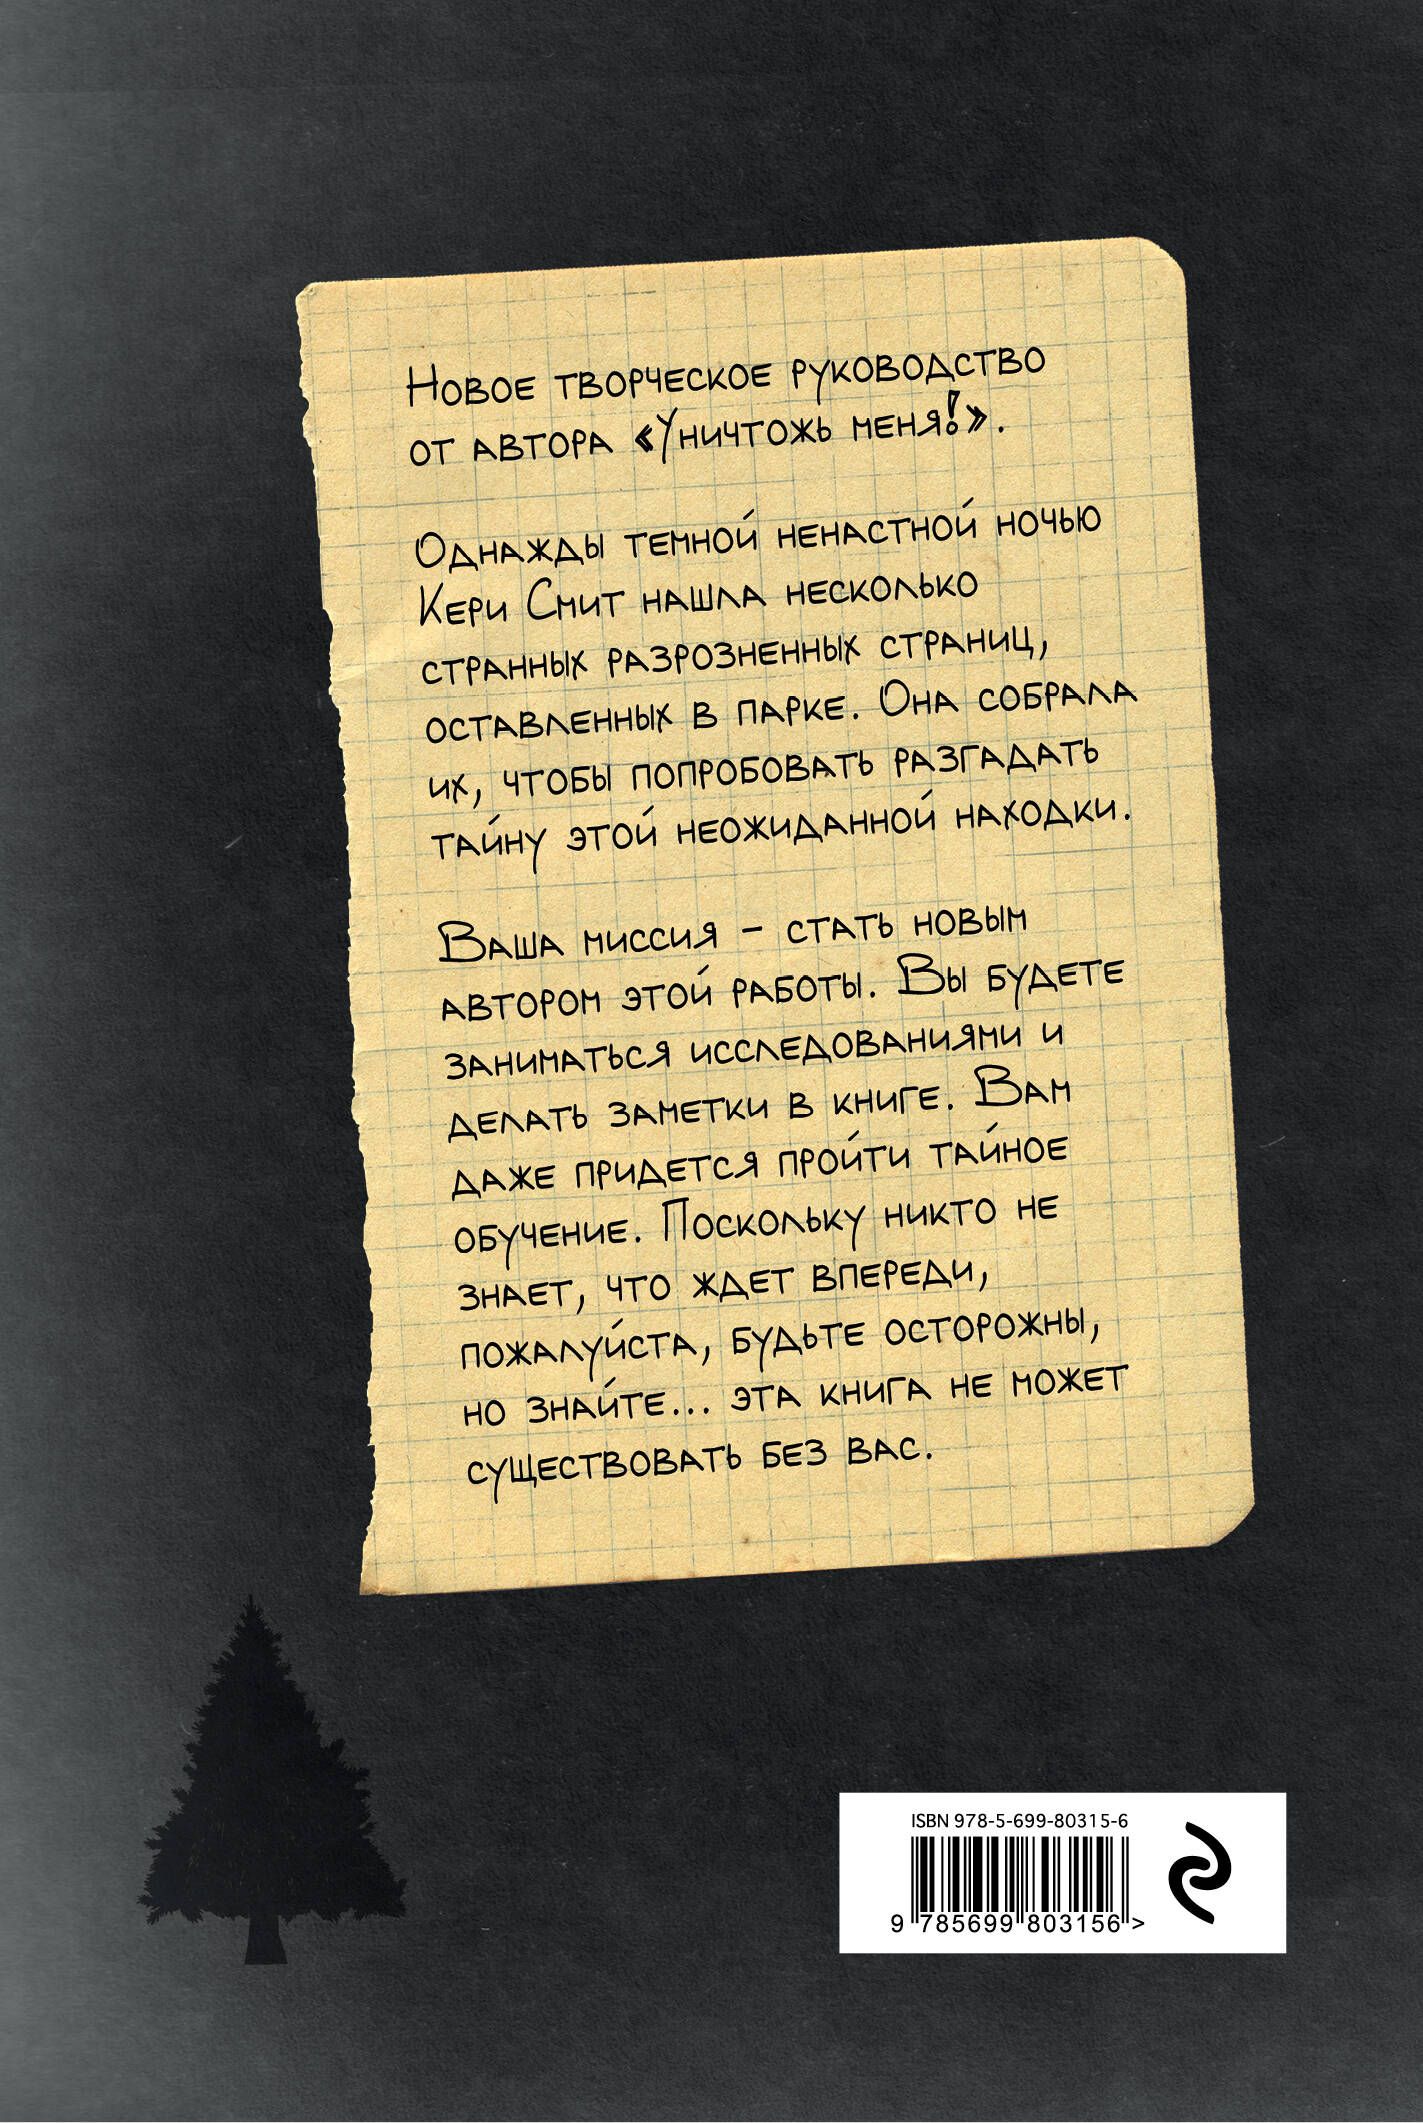 Новое творческое руководство
от автора «Уничтожь меня!».
Однажды темной ненастной ночью
Кери Смит нашла несколько
странных разрозненных страниц,
оставленных в парке. Она собрала
их, чтобы попробовать разгадать
тайну этой неожиданной находки.
Ваша миссия – стать новым
автором этой работы. Вы будете
заниматься исследованиями и
делать заметки в книге. Вам
даже придется пройти тайное
обучение. Поскольку никто не
знает, что ждет впереди,
пожалуйста, будьте осторожны,
но знайте... эта книга не может
существовать без вас.
ISBN 978-5-699-80315-6
9 785699 803156 >